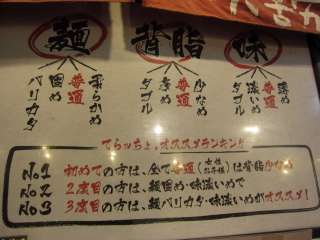 麺
背脂
味
柔らかめ
普通
固め
バリカタ
少なめ
普通
多め
ダブル
薄め
普通
濃いめ
てらっちょ。オススメランキング
No.1 初めての方は、全て普通(女性 お子様)は背脂少なめ
No.2 2度目の方は、麺固め・味濃いめで
No.3 3度目の方は、麺バリカタ・味濃いめがオススメ!